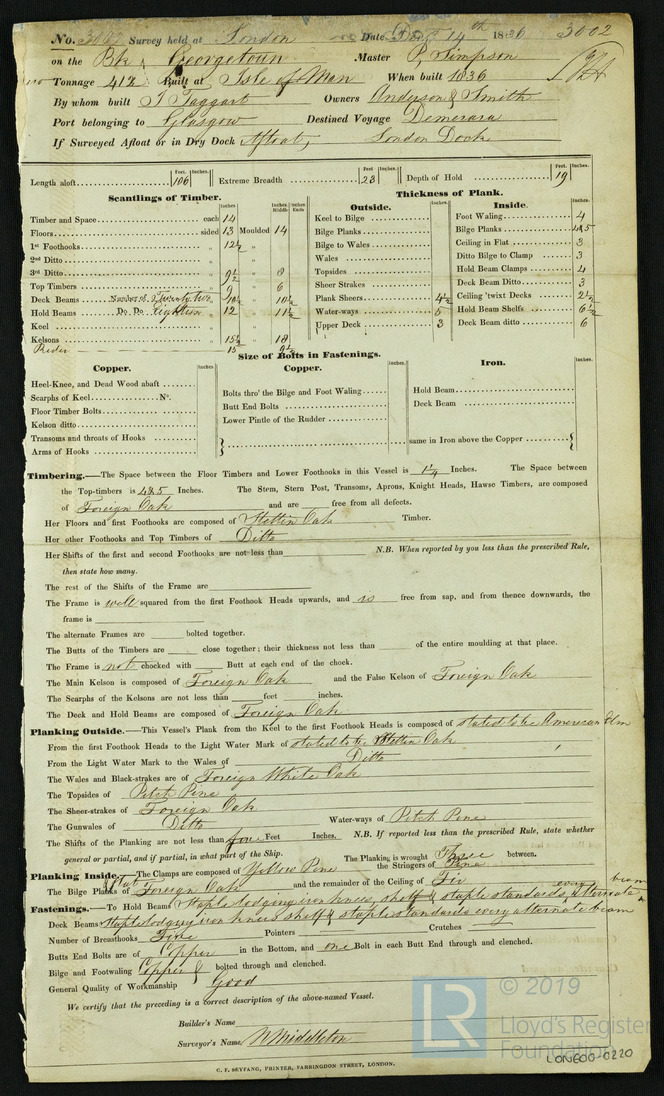 No. 3002 Survey held at London Date, Dec 14th 1836 3002
on the Bk Georgetown Master P. Simpson
Tonnage 412 Built at Isle of Man When built 1836
By whom built J Taggart Owners Anderson & Smith
Port belonging to Glasgow Destined Voyage Demerara
If Surveyed Afloat or in Dry Dock Afloat, London Dock
Feet. Inches. Feet Inches. Feet. Inches.
Length aloft 106 Extreme Breadth 23 Depth of Hold 19
Scantlings of Timber.
Inches Inches Middle Inches Ends
Timber and Space each 14
Floors sided 13 Moulded 14
1st Foothooks „ 12½ „
2nd Ditto „ „
3rd Ditto „ 9½ „ 8
Top Timbers „ 9 „ 6
Deck Beams Number of Twenty two „ 10½ „ 10½
Hold Beams Do. Do. Eighteen „ 12 „ 11½
Keel „ „
Kelsons „ 15½ „ 18
Rider 15 9½
Thickness of Plank.
Outside. Inches
Keel to Bilge
Bilge Planks
Bilge to Wales
Wales
Topsides
Sheer Strakes
Plank Sheers 4½
Water-ways 5
Upper Deck 3
Inside. Inches.
Foot Waling 4
Bilge Planks 4&5
Ceiling in Flat 3
Ditto Bilge to Clamp 3
Hold Beam Clamps 4
Deck Beam Ditto 3
Ceiling 'twixt Decks 2½
Hold Beam Shelfs 6½
Deck Beam ditto 6
Size of Bolts in Fastenings.
Copper. Inches
Heel-Knee, and Dead Wood abaft
Scarphs of Keel No.
Floor Timber Bolts
Kelson ditto
Transoms and throats of Hooks
Arms of Hooks
Copper. Inches
Bolts thro' the Bilge and Foot Waling
Butt End Bolts
Lower Pintle of the Rudder
Iron. Inches.
Hold Beam
Deck Beam
same in Iron above the Copper
Timbering.—The Space between the Floor Timbers and Lower Foothooks in this Vessel is 1¼ Inches. The Space between
the Top-timbers is 4&5 Inches. The Stem, Stern Post, Transoms, Aprons, Knight Heads, Hawse Timbers, are composed
of Foreign Oak and are free from all defects.
Her Floors and first Foothooks are composed of Stettin Oak Timber.
Her other Foothooks and Top Timbers of Ditto
Her Shifts of the first and second Foothooks are not less than N.B. When reported by you less than the prescribed Rule,
then state how many.
The rest of the Shifts of the Frame are
The Frame is well squared from the first Foothook Heads upwards, and is free from sap, and from thence downwards, the
frame is
The alternate Frames are bolted together.
The Butts of the Timbers are close together; their thickness not less than of the entire moulding at that place.
The Frame is not chocked with Butt at each end of the chock.
The Main Kelson is composed of Foreign Oak and the False Kelson of Foreign Oak
The Scarphs of the Kelsons are not less than feet inches.
The Deck and Hold Beams are composed of Foreign Oak
Planking Outside.—This Vessel's Plank from the Keel to the first Foothook Heads is composed of stated to be American Elm
From the first Foothook Heads to the Light Water Mark of stated to be Stettin Oak
From the Light Water Mark to the Wales of Ditto
The Wales and Black-strakes are of Foreign White Oak
The Topsides of Pitch Pine
The Sheer-strakes of Foreign Oak
The Gunwales of Ditto Water-ways of Pitch Pine
The Shifts of the Planking are not less than four Feet Inches. N.B. If reported less than the prescribed Rule, state whether
general or partial, and if partial, in what part of the Ship. The Planking is wrought Three between.
Planking Inside.—The Clamps are composed of Yellow Pine the Stringers of Pine
The Bilge Planks of Flat Foreign Oak and the remainder of the Ceiling of Fir
Fastenings.—To Hold Beams Staple lodging iron knees, shelf & staple standards every alternate beam
Deck Beams Staple lodging iron knees shelf & staple standards every alternate beam
Number of Breasthooks Five Pointers Crutches
Butts End Bolts are of Copper in the Bottom, and one Bolt in each Butt End through and clenched.
Bilge and Footwaling Copper & bolted through and clenched.
General Quality of Workmanship Good
We certify that the preceding is a correct description of the above-named Vessel.
Builder's Name
Surveyor's Name W Middleton
C. F. SEYFANG, PRINTER, FARRINGDON STREET, LONDON.
LR © 2019
Lloyd's Register
Foundation
LON600-0220